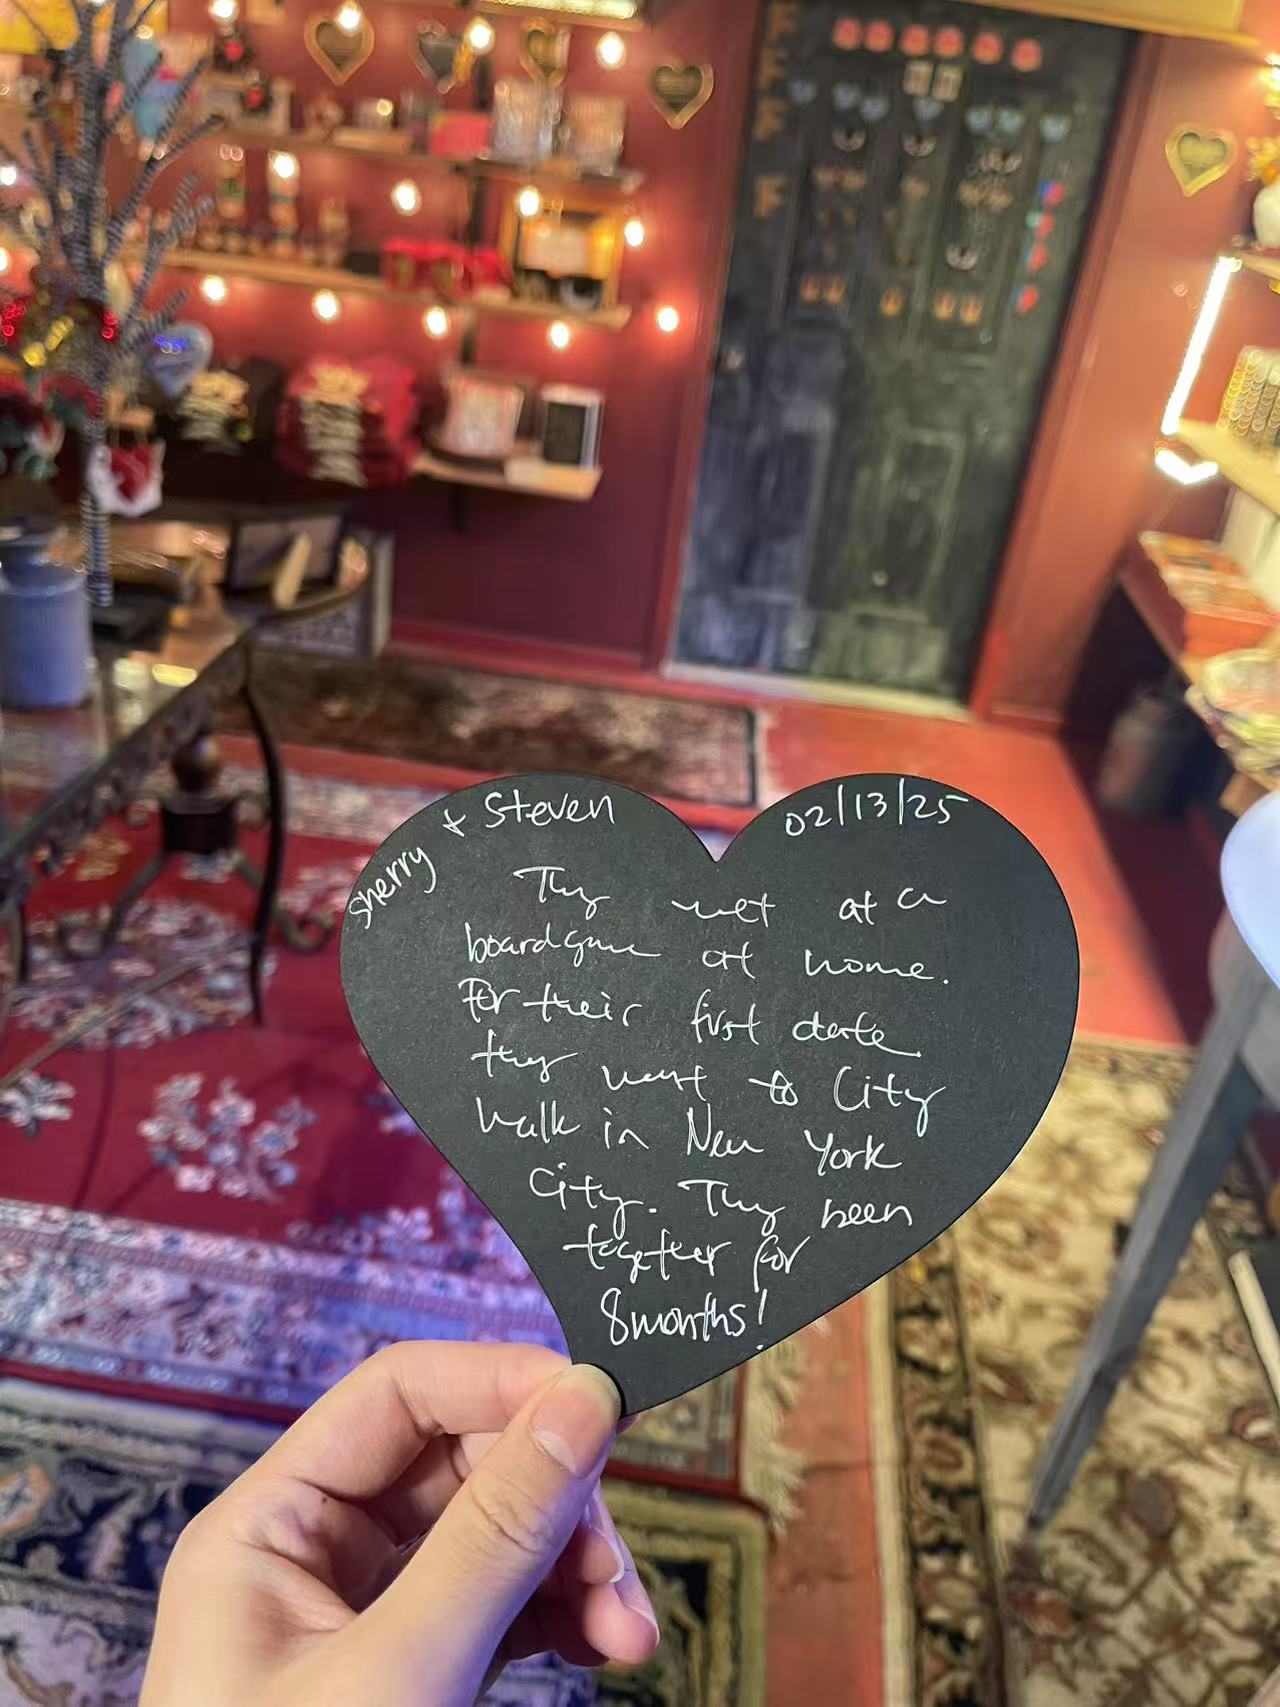 Sherry & Steven
02/13/25
They met at a
boardgame at home.
For their first date
they went to City
Walk in New York
City. They been
together for
8 months!